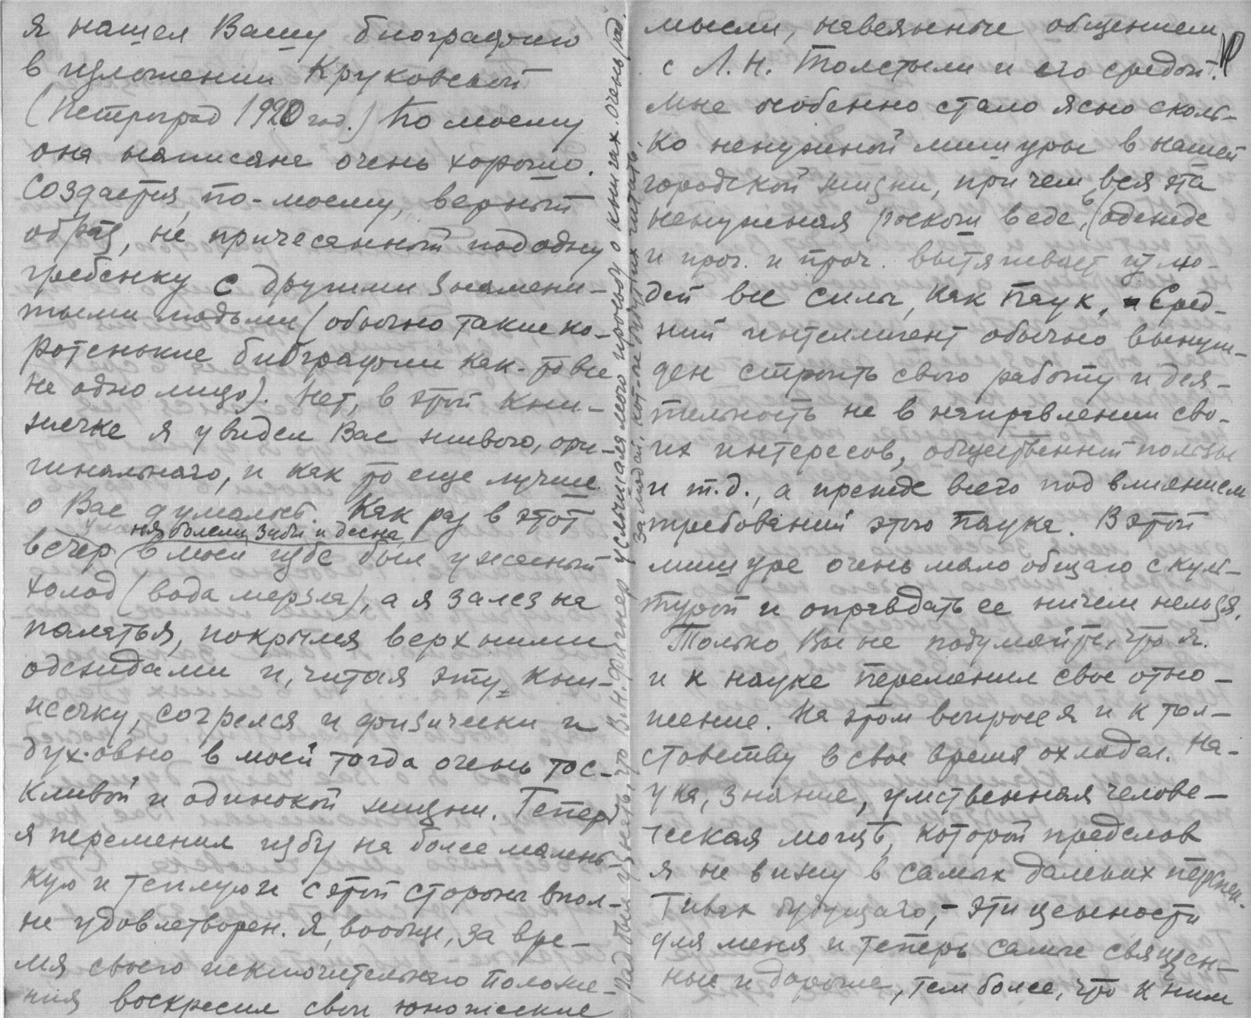 я нашел Вашу биографию
в изложении Круковской
(Петроград 1920 год.) По моему
она написана очень хорошо.
Создается, по-моему, верный
образ, не причесанный под одну
гребенку с другими знамени-
тыми людьми (обычно такие ко-
ротенькие биографии как-то все
на одно лицо). Нет, в этой кни-
жечке я увидел Вас живого, ори-
гинального, и как то еще лучше
о Вас думалось. Как раз в этот
ня болели зубы и десна
вечер в моей избе был ужасный
холод (вода мерзла), а я залез на
полатья, покрылся верхними
одеждами и, читая эту кни-
жечку, согрелся и физически и
духовно в моей тогда очень тос-
кливой и одинокой жизни. Теперь
я переменил избу на более малень-
кую и теплую и с этой стороны впол-
не удовлетворен. Я, вообще, за вре-
мя своего исключительного положе-
ния воскресил свои юношеские
рад был узнать, что В.Н. Фигнер услышала мою просьбу о книгах. Очень рад
мысли, навеянные общением
с Л.Н. Толстым и его средой.
Мне особенно стало ясно сколь-
ко ненужной мишуры в нашей
городской жизни, причем вся эта
ненужная роскошь в еде, одежде
и проч. и проч. вытягивает из лю-
дей все силы, как паук. Сред-
ний интеллигент обычно вынуж-
ден строить свою работу и дея-
тельность не в направлении сво-
их интересов, общественной пользы
и т.д., а прежде всего под влиянием
требований этого паука. В этой
мишуре очень мало общаго с куль-
турой и оправдать ее ничем нельзя.
Только Вы не подумайте, что я
и к науке переменил свое отно-
шение. На этом вопросе я и к тол-
стовству в свое время охладел. На-
ука, знание, умственная челове-
ческая мощь, которой пределов
я не вижу в самых далеких перспек-
тивах будущаго, - эти ценности
для меня и теперь самые священ-
ные и дорогие, тем более, что к ним